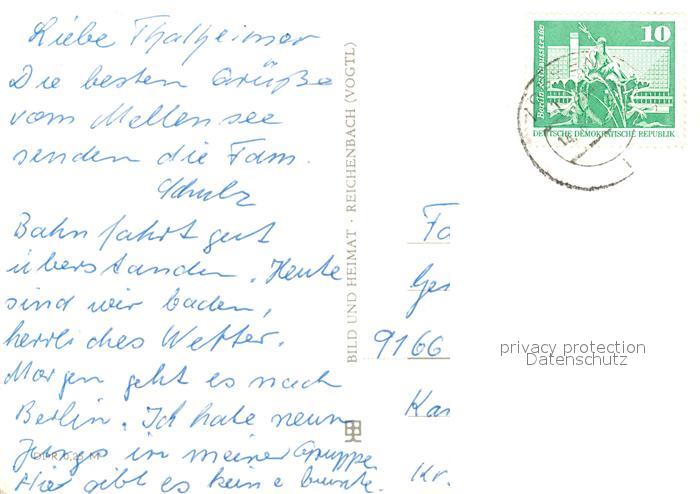 Liebe Thalheimer
Die besten Grüße
vom Mellensee
senden die Fam.
Schulz
Bahnfahrt gut
überstanden. Heute
sind wir baden,
herrliches Wetter.
Morgen geht es nach
Berlin. Ich habe neun
Jungs in meiner Gruppe
Hier gibt es keine bunte.
BILD UND HEIMAT · REICHENBACH (VOGTL)
10
Berlin, Rathausstraße
DEUTSCHE DEMOKRATISCHE REPUBLIK
Fa
Ges
9166
Kar
Kr.
privacy protection
Datenschutz